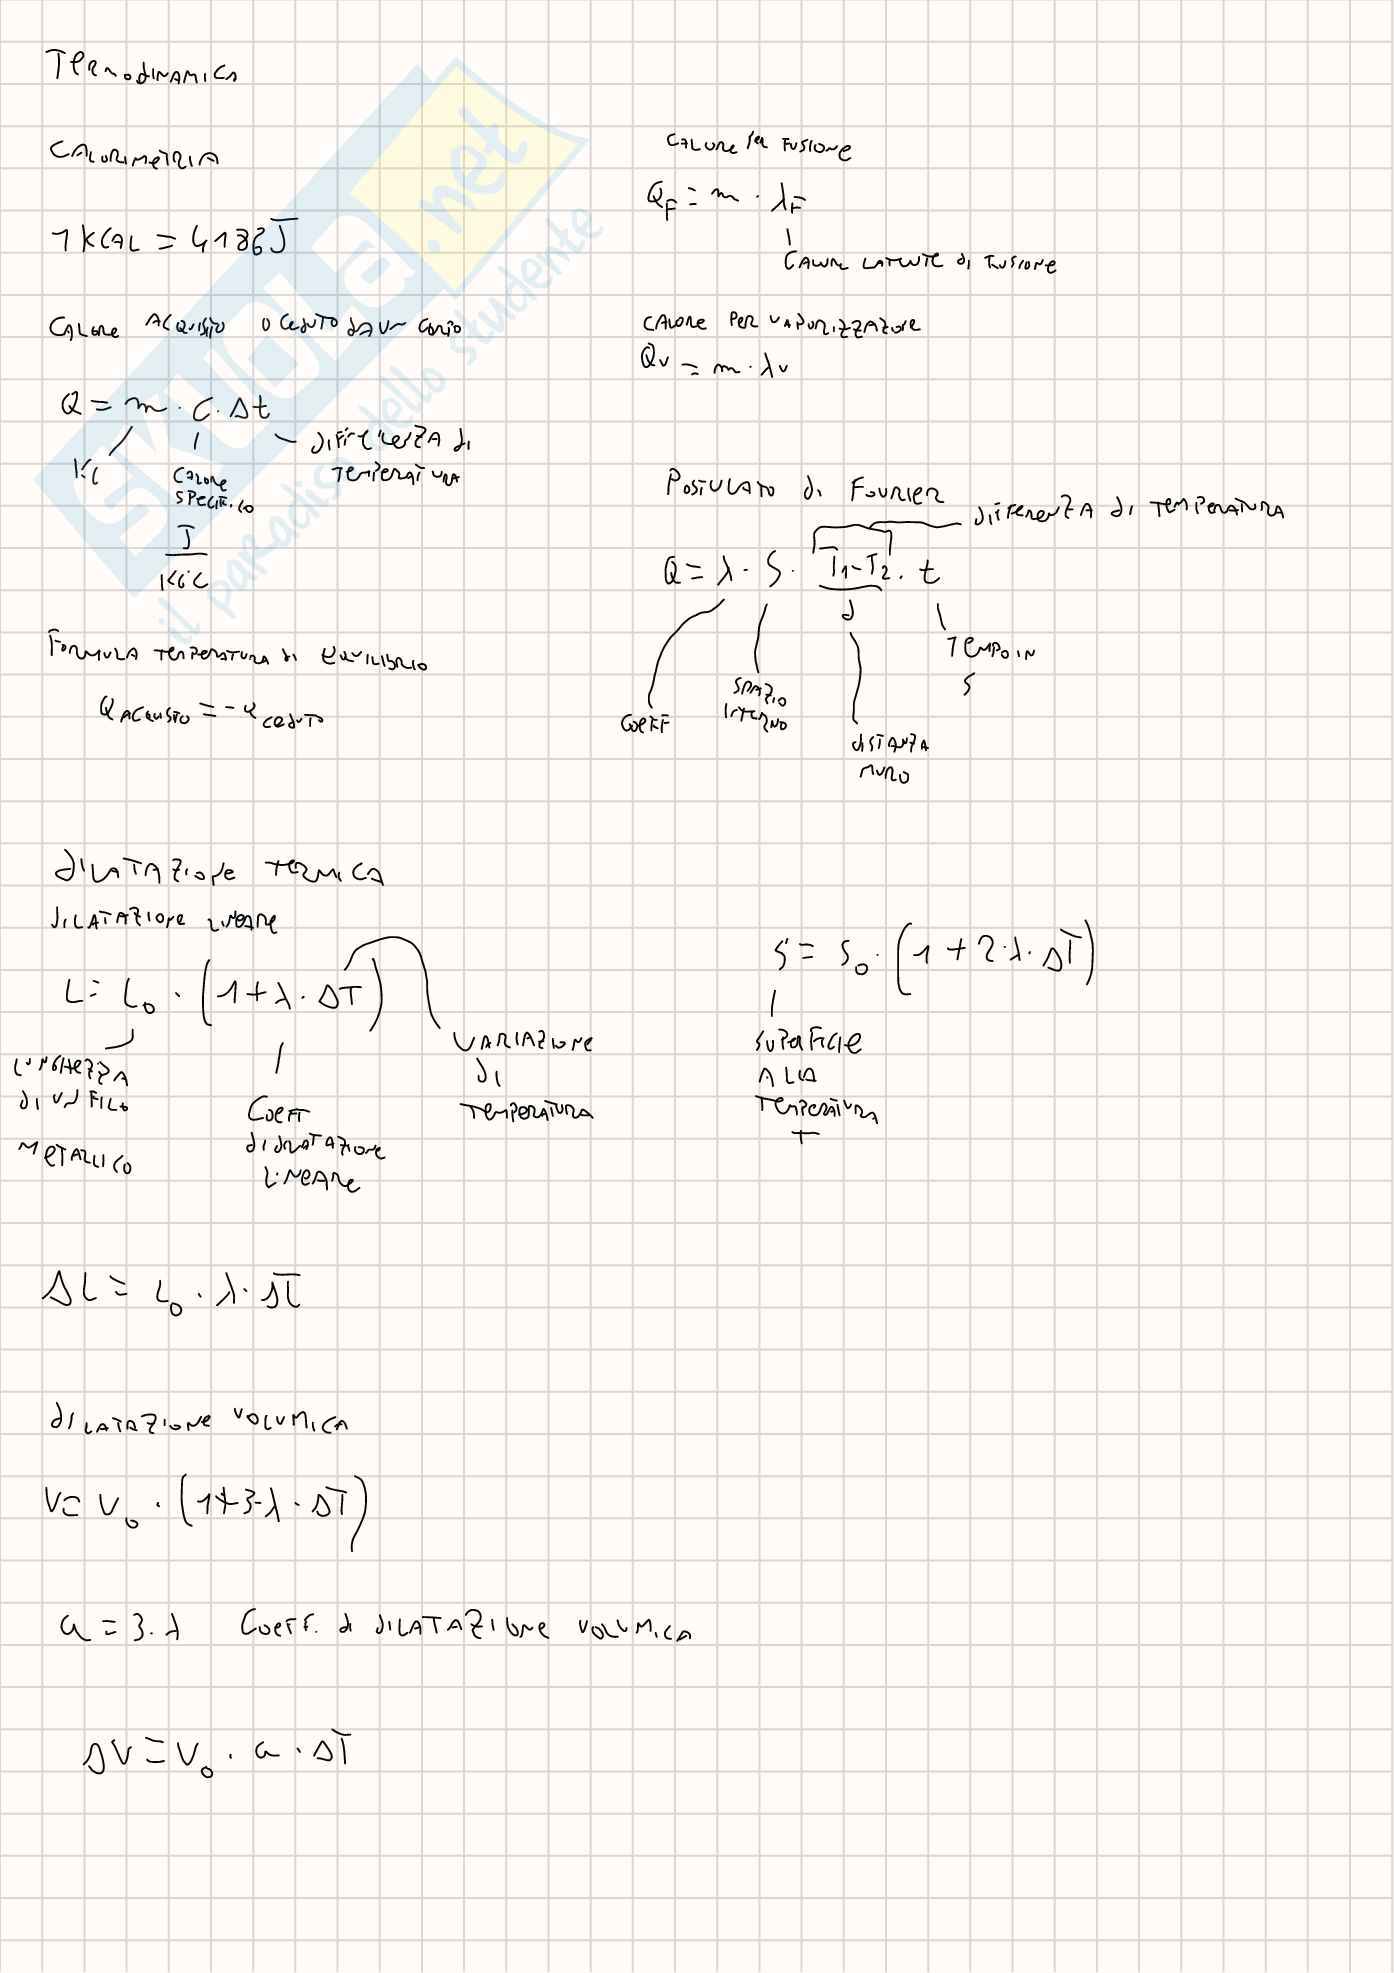 TERMODINAMICA
CALORIMETRIA
1 KCAL = 4186 J
CALORE ACQUISITO O CEDUTO DA UN CORPO
Q = m · C · Δt
KG
CALORE
SPECIFICO
J
KG°C
DIFFERENZA DI
TEMPERATURA
FORMULA TEMPERATURA DI EQUILIBRIO
Q ACQUISTO = - Q CEDUTO
CALORE PER FUSIONE
Q_F = m · λ_F
CALORE LATENTE DI FUSIONE
CALORE PER VAPORIZZAZIONE
Q_V = m · λ_V
POSTULATO DI FOURIER
DIFFERENZA DI TEMPERATURA
Q = λ · S · (T_1 - T_2) / d · t
COEFF
SPAZIO
INTERNO
DISTANZA
MURO
TEMPO IN
S
DILATAZIONE TERMICA
DILATAZIONE LINEARE
L = L_0 · (1 + λ · ΔT)
LUNGHEZZA
DI UN FILO
METALLICO
COEFF
DI DILATAZIONE
LINEARE
VARIAZIONE
DI
TEMPERATURA
S = S_0 · (1 + 2 · λ · ΔT)
SUPERFICIE
ALLA
TEMPERATURA
T
ΔL = L_0 · λ · ΔT
DILATAZIONE VOLUMICA
V = V_0 · (1 + 3 · λ · ΔT)
a = 3 · λ COEFF. DI DILATAZIONE VOLUMICA
ΔV = V_0 · a · ΔT
SKUOLA.net
il paradiso dello studente